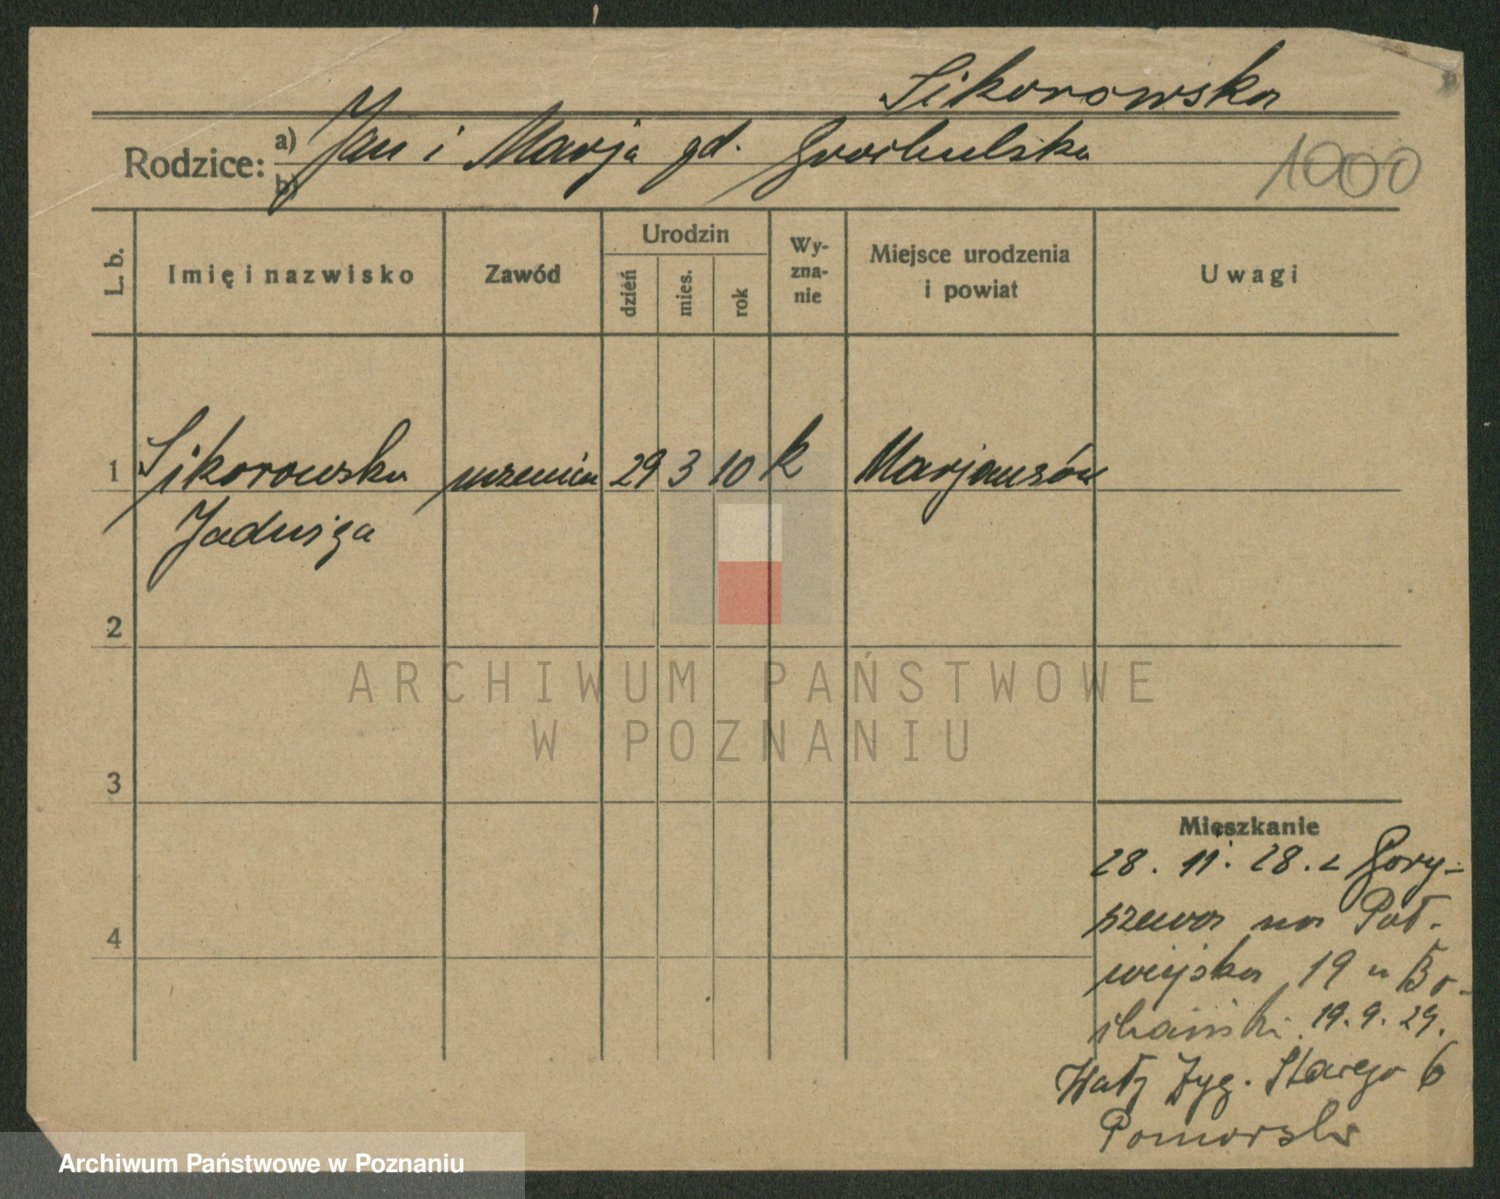 Sikorowska
Rodzice: a) Jan i Marja gd. Grochulska
b)
1000
L. b. Imię i nazwisko Zawód Urodzin dzień mies. rok Wy-zna-nie Miejsce urodzenia i powiat Uwagi
1 Sikorowska uczenica 29 3 10 k Marjanów
Jadwiga
2
3
4
Mieszkanie
28. 11. 28. z Gory-
szewa na Pół-
wiejska 19 u
19. 9. 29.
Wały Zyg. Starego 6
Pomorski
ARCHIWUM PAŃSTWOWE
W POZNANIU
Archiwum Państwowe w Poznaniu